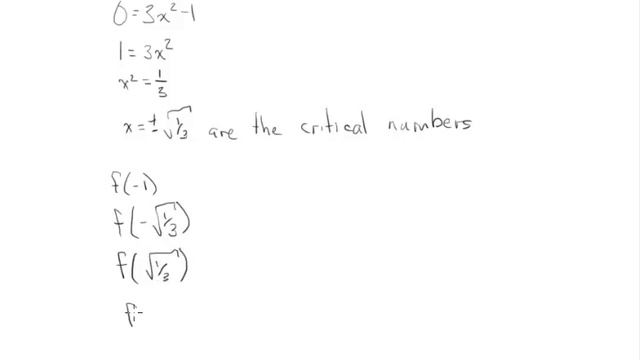 0 = 3x² - 1
1 = 3x²
x² = 1/3
x = ± √1/3 are the critical numbers
f(-1)
f(-√1/3)
f(√1/3)
f